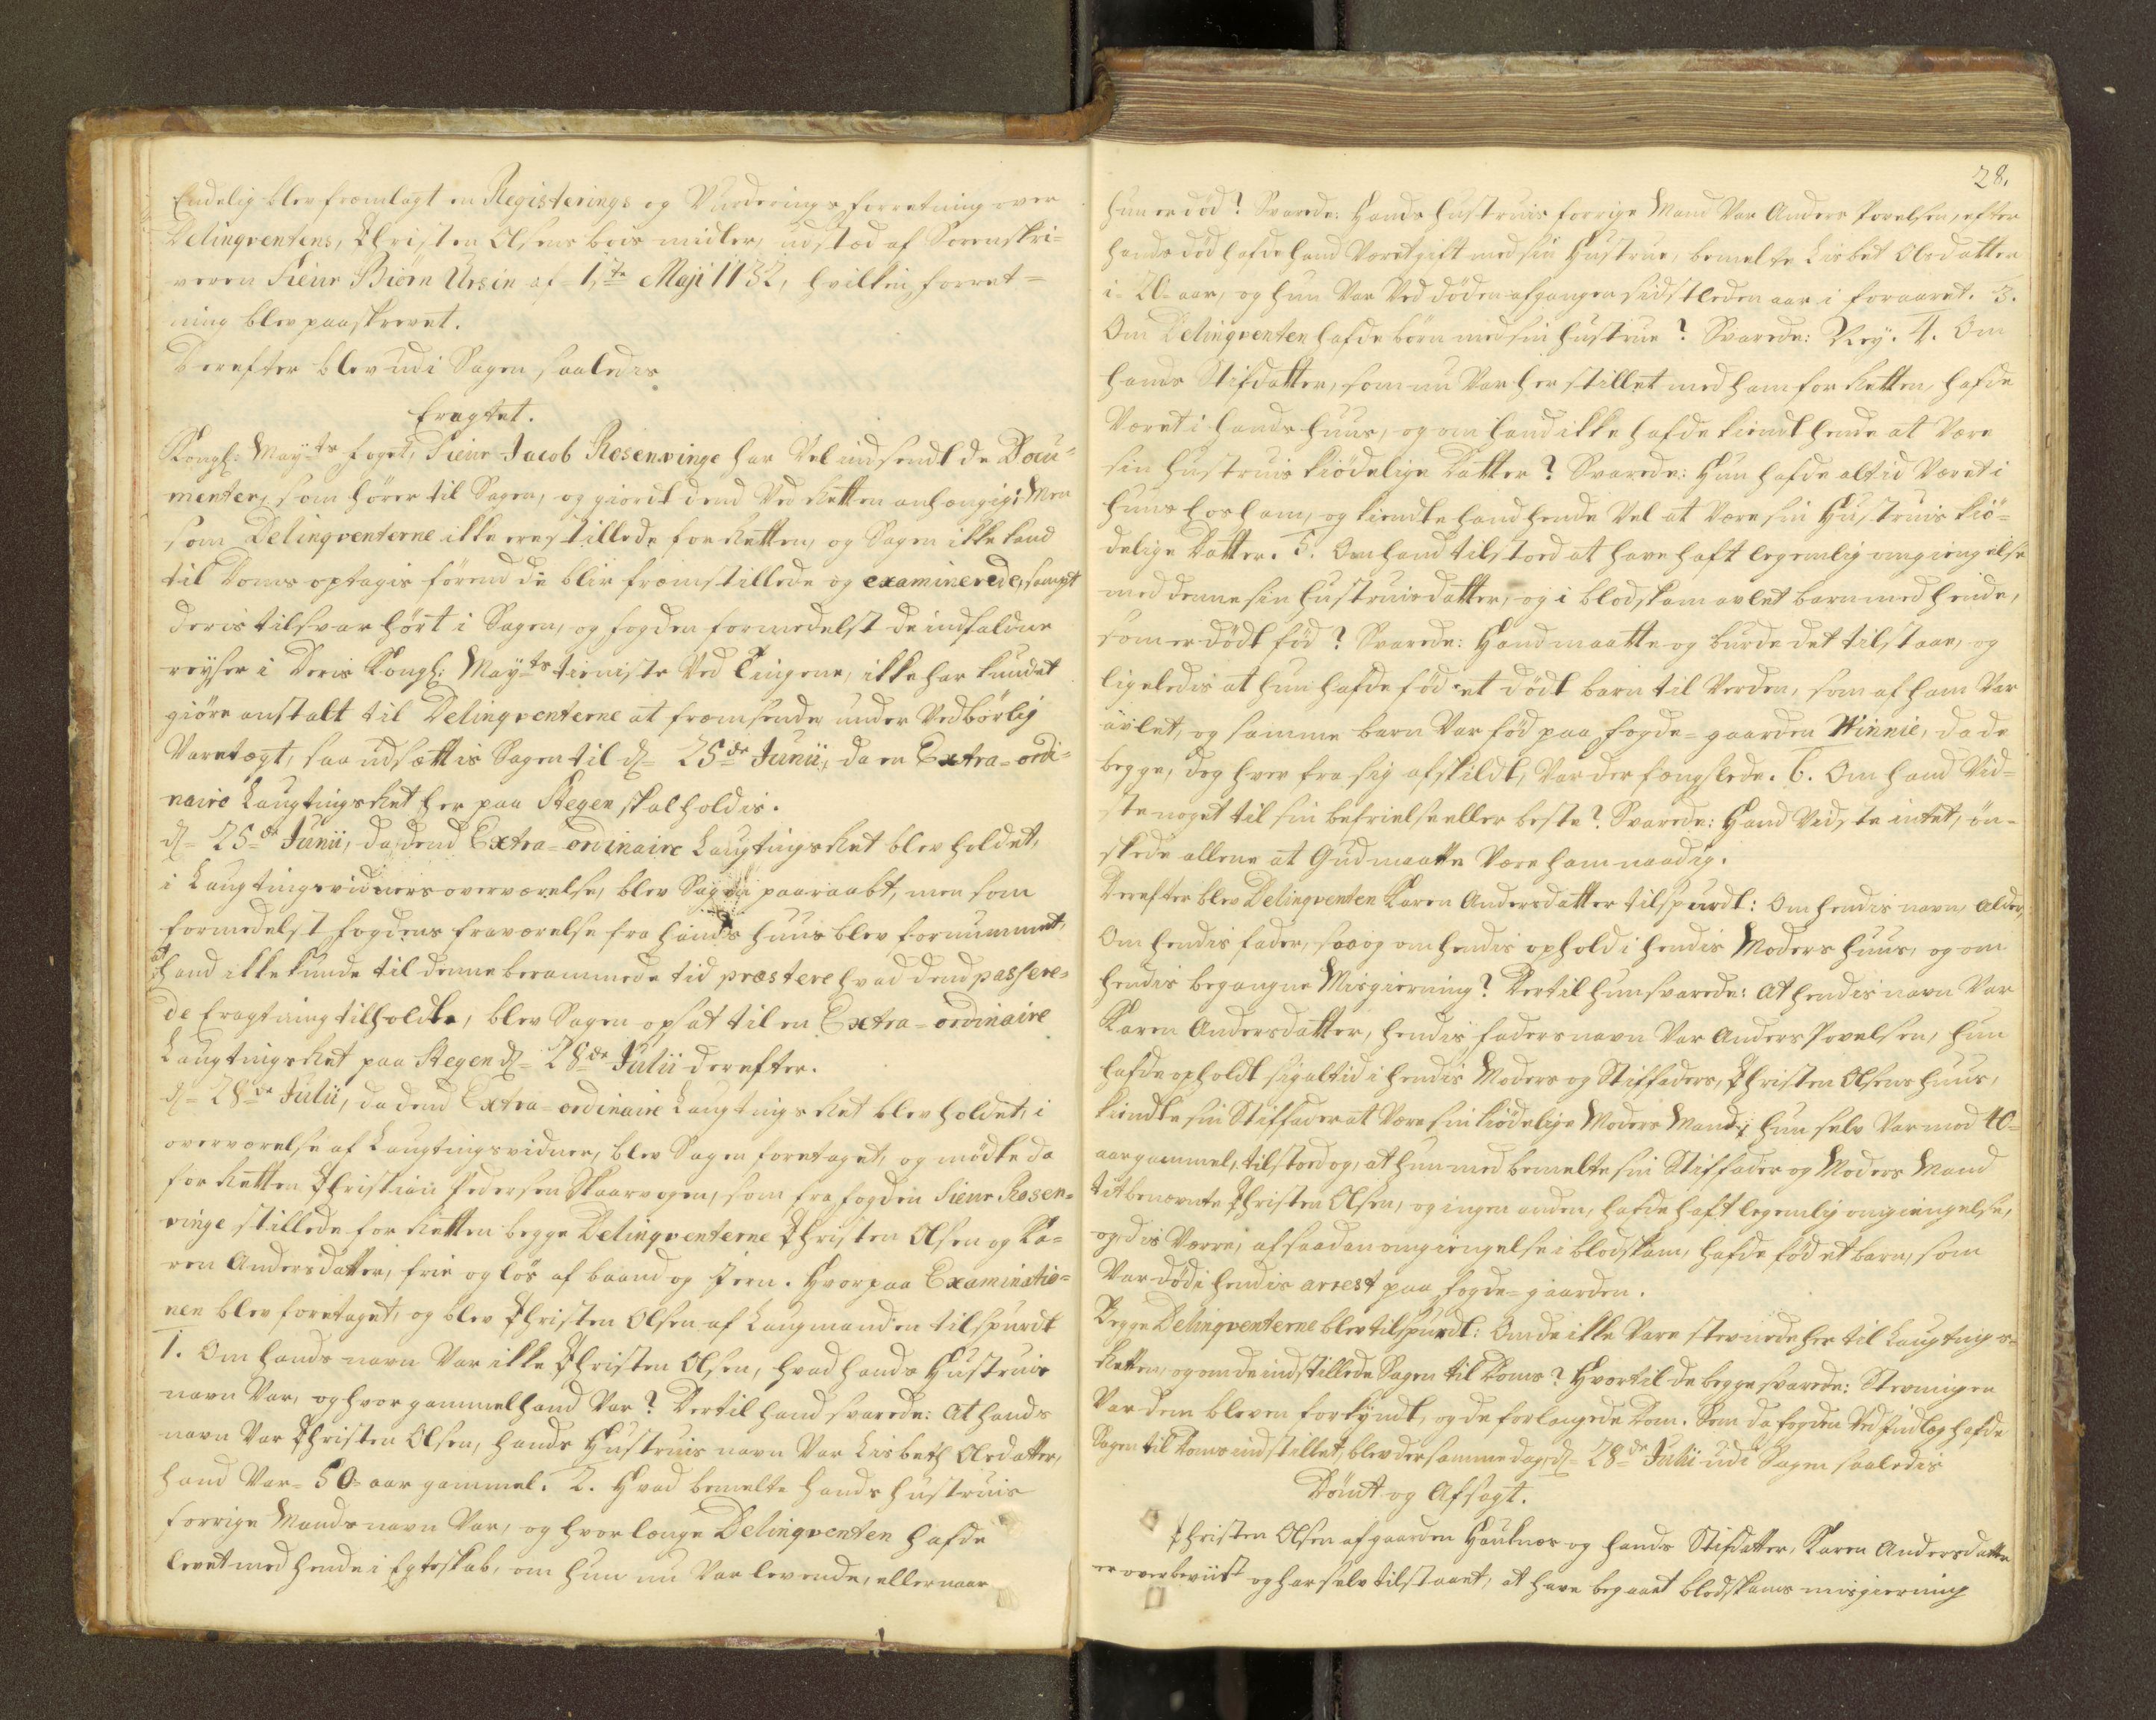 Endelig blev fremlagt en Registerings og Vurderings forretning over
Delinqventens, Christen Olsens boes midler, udstæd af Sorenskri-
veren Sieur Biørn Ursin af 1ste Maji 1732, hvilken forret-
ning blev paaskrevet.
Derefter blev udi Sagen saaledis
Eragtet.
Kongl: Mayts foget, Sieur Jacob Rosenvinge har Vel indsendt de Docu-
menter, som hører til Sagen, og giordt dend Ved Retten anhængig; Men
som Delinqventerne ikke ere stillede for Retten, og Sagen ikke kand
til Doms optagis førend de blir fremstillede og examinerede, sampt
deris tilsvar hørt i Sagen, og fogden formedelst de indfaldne
reyser i Deris Kongl: Mayts tieniste Ved Tingene, ikke har kundet
giøre anstalt til Delinqventerne at fremsende under Vedbørlig
Varetægt, saa udsættis Sagen til d. 25de Junii, da en Extra-ordi-
naire Laugtings Ret her paa Stegen skal holdis.
d. 25de Junii, da dend Extra-ordinaire Laugtings Ret blev holdet,
i Laugtingsvidners overværelse, blev Sagen paaraabt, men som
formedelst fogdens fraværelse fra hands huus blev fornummet,
at hand ikke kunde til denne berammede tid præstere hvad dend passere-
de Eragtning tilholdte, blev Sagen opsat til en Extra-ordinaire
Laugtings Ret paa Stegen d. 28de Julii derefter.
d. 28de Julii, da dend Extra-ordinaire Laugtings Ret blev holdet, i
overværelse af Laugtingsvidner, blev Sagen foretaget, og mødte da
for Retten Christian Pedersen Skaarvogen, som fra fogden Sieur Rosen-
vinge stillede for Retten begge Delinqventerne Christen Olsen og Ka-
ren Andersdatter, frie og løs af baand og Jern. Hvorpaa Examinatio-
nen blev foretaget, og blev Christen Olsen af Laugmanden tilspurdt
1. Om hands navn Var ikke Christen Olsen, hvad hands Hustrues
navn Var, og hvor gammel hand Var? Dertil hand svarede: At hands
navn Var Christen Olsen, hands Hustrues navn Var Lisbeth Olsdatter,
hand Var 50 aar gammel. 2. Hvad bemelte hands hustrues
forrige Mands navn Var, og hvor længe Delinqventen hafde
levet med hende i Egteskab, om hun nu Var levende, eller naar
28.
hun er død? Svarede: Hands hustrues forrige Mand Var Anders Povelsen, efter
hands død hafde hand Været gift med sin Hustrue, bemelte Lisbet Olsdatter
i 20 aar, og hun Var Ved døden afgangen sidstleden aar i foraaret. 3.
Om Delinqventen hafde børn med sin hustrue? Svarede: Ney. 4. Om
hands Stifdatter, som nu Var her stillet med ham for Retten, hafde
Været i hands huus, og om hand ikke hafde kiendt hende at Være
sin hustrues kiødelige Datter? Svarede: Hun hafde altid Været i
huus hos ham, og kiendte hand hende Vel at Være sin Hustrues kiø-
delige Datter. 5. Om hand tilstoed at have haft legemlig omgiengelse
med denne sin hustrues datter, og i blodskam avlet barn med hende,
som er dødt fød? Svarede: Hand maatte og burde det tilstaae, og
ligeledis at hun hafde fød et dødt barn til Verden, som af ham Var
avlet, og samme barn Var fød paa fogde-gaarden Winnie, da de
begge, dog hver fra sig afskildt, Var der fængslede. 6. Om hand Vid-
ste noget til sin befrielse eller beste? Svarede: Hand Vidste intet, øn-
skede allene at Gud maatte Være ham naadig.
Derefter blev Delinqventen Karen Andersdatter tilspurdt: Om hendis navn, Alder,
Om hendis fader, saa og om hendis ophold i hendis Moders huus, og om
hendis begangne Misgierning? Dertil hun svarede: At hendis navn Var
Karen Andersdatter, hendis faders navn Var Anders Povelsen, hun
hafde opholdt sig altid i hendis Moders og Stiffaders, Christen Olsens huus,
kiendte sin Stiffader at Være sin kiødelige Moders Mand; hun selv Var mod 40
aar gammel, tilstoed og, at hun med bemelte sin Stiffader og Moders Mand
titbenævnte Christen Olsen, og ingen anden, hafde haft legemlig omgiengelse,
og, dis Værre, af saadan omgiengelse i blodskam, hafde fød et barn, som
Var død i hendis arrest paa fogde-gaarden.
Begge Delinqventerne blev tilspurdt: Om de ikke Vare stevnede her til Laugtings-
Retten, og om de indstillede Sagen til Doms? Hvortil de begge svarede: Stevningen
Var dem bleven forkyndt, og de forlangede Dom. Som da fogden Ved Indlæg hafde
Sagen til Doms indstillet, blev der samme dag, d. 28de Julii udi Sagen saaledis
Dømt og Afsagt.
Christen Olsen af gaarden Hauknæs og hands Stifdatter, Karen Andersdatter
er overbeviist og har selv tilstaaet, at have begaaet blodskams misgierning